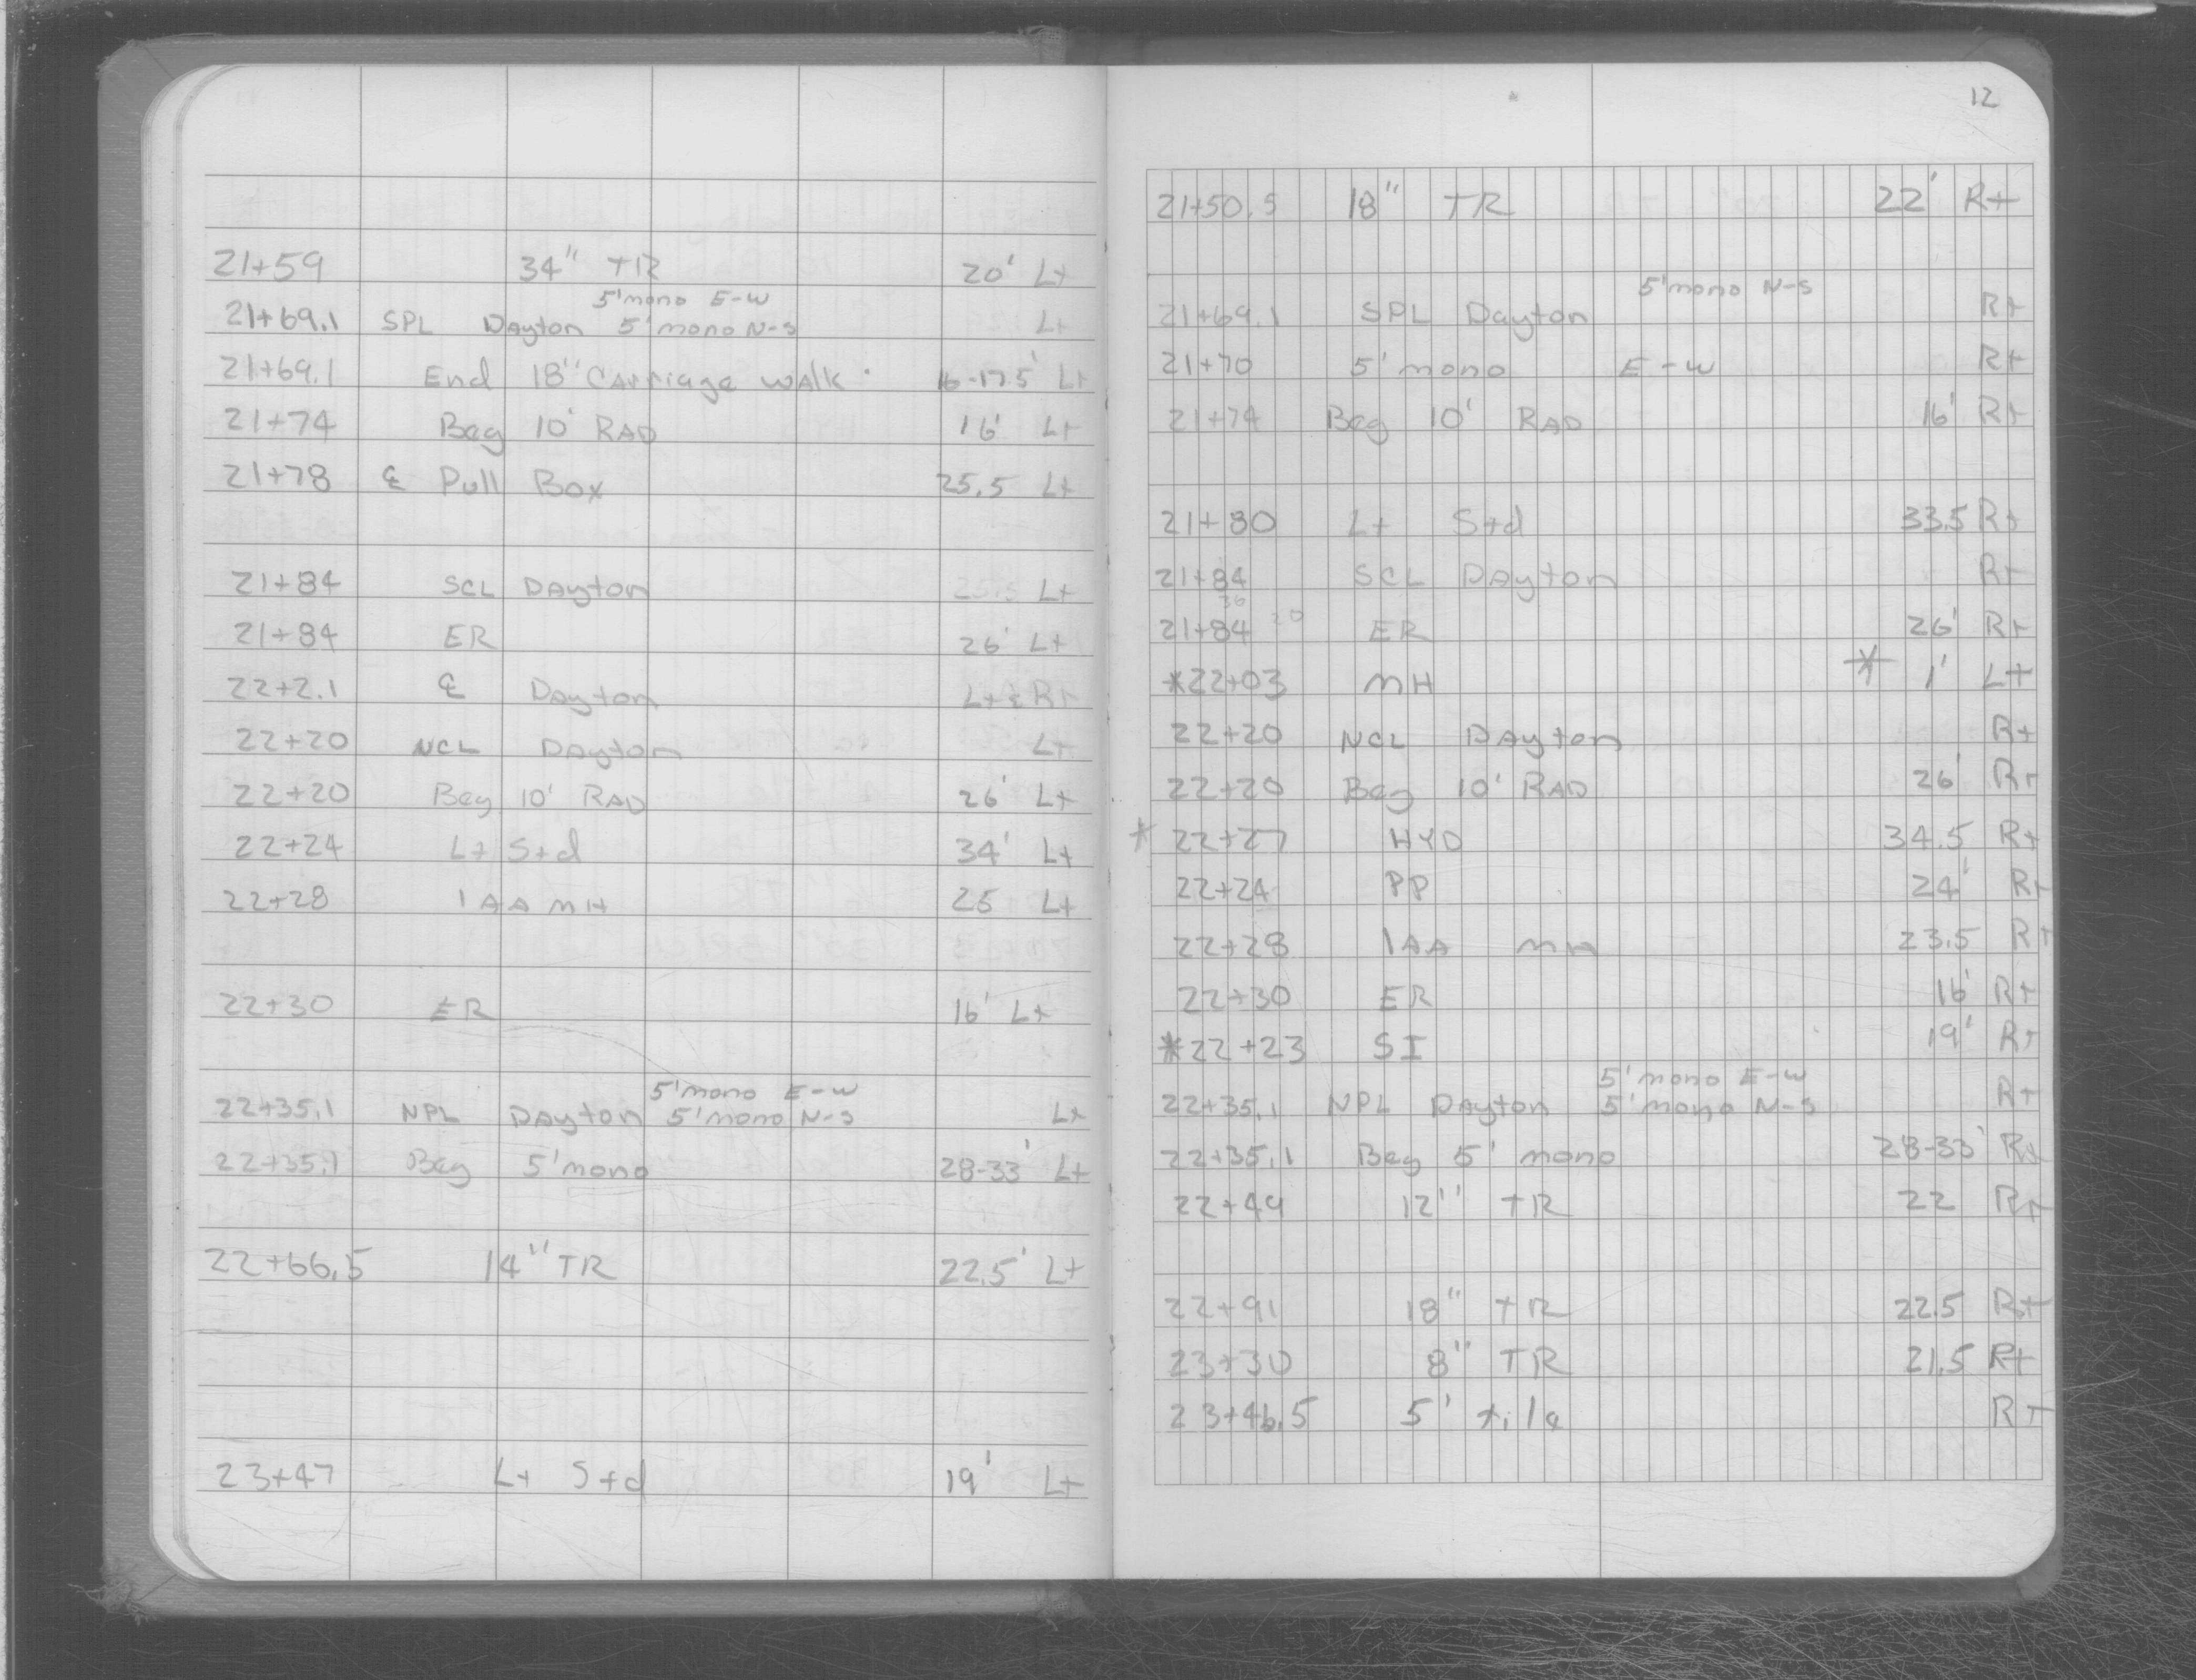 21+59 34" TR 20' Lt
5' mono E-W
21+69.1 SPL Dayton 5' mono N-S Lt
21+69.1 End 18" Carriage walk 16-17.5' Lt
21+74 Beg 10' RAD 16' Lt
21+78 ℄ Pull Box 25.5 Lt
21+84 SCL Dayton Lt
21+84 ER 26' Lt
22+2.1 ℄ Dayton Lt & Rt
22+20 NCL Dayton Lt
22+20 Beg 10' RAD 26' Lt
22+24 Lt Std 34' Lt
22+28 IAA MH 25 Lt
22+30 ER 16' Lt
5' mono E-W
22+35.1 NPL Dayton 5' mono N-S Lt
22+35.1 Beg 5' mono 28-33' Lt
22+66.5 14" TR 22.5' Lt
23+47 Lt Std 19' Lt
12
21+50.5 18" TR 22' Rt
5' mono N-S
21+69.1 SPL Dayton Rt
21+70 5' mono E-W Rt
21+74 Beg 10' RAD 16' Rt
21+80 Lt Std 33.5 Rt
21+84 SCL Dayton Rt
21+84 ER 26' Rt
*22+03 MH * 1' Lt
22+20 NCL Dayton Rt
22+20 Beg 10' RAD 26' Rt
* 22+27 HYD 34.5 Rt
22+24 PP 24' Rt
22+28 IAA MH 23.5 Rt
22+30 ER 16' Rt
*22+23 SI 19' Rt
5' mono E-W
22+35.1 NPL Dayton 5' mono N-S Rt
22+35.1 Beg 5' mono 28-33' Rt
22+49 12" TR 22 Rt
22+91 18" TR 22.5 Rt
23+30 8" TR 21.5 Rt
23+46.5 5' tile Rt